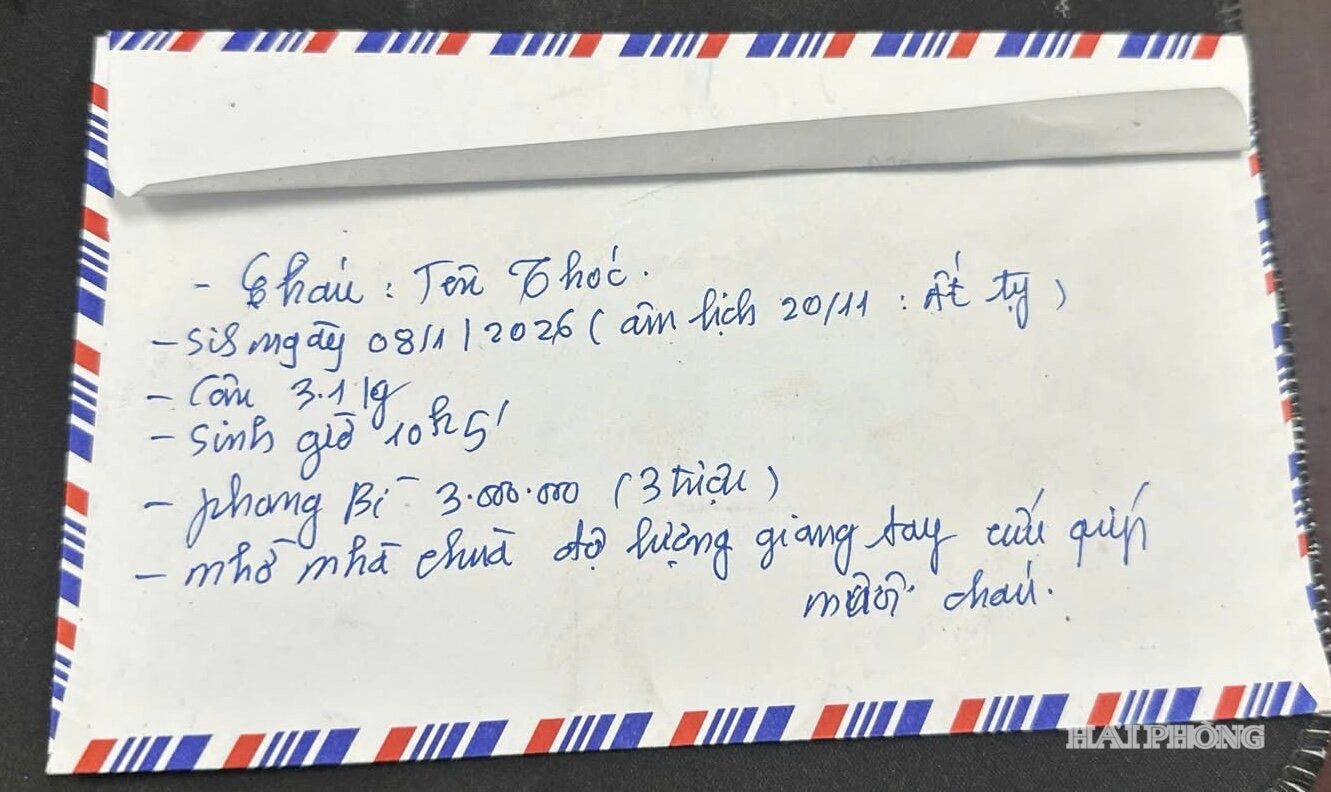 - Cháu : Tên Thóc.
- Sis ngày 08/1/2026 ( âm lịch 20/11 : Ất tỵ )
- Cân 3.1 kg
- Sinh giờ 10h5'
- phong Bì 3.000.000 ( 3 triệu )
- nhờ nhà chùa độ lượng giang tay cứu giúp
nuôi cháu.
HẢI PHÒNG